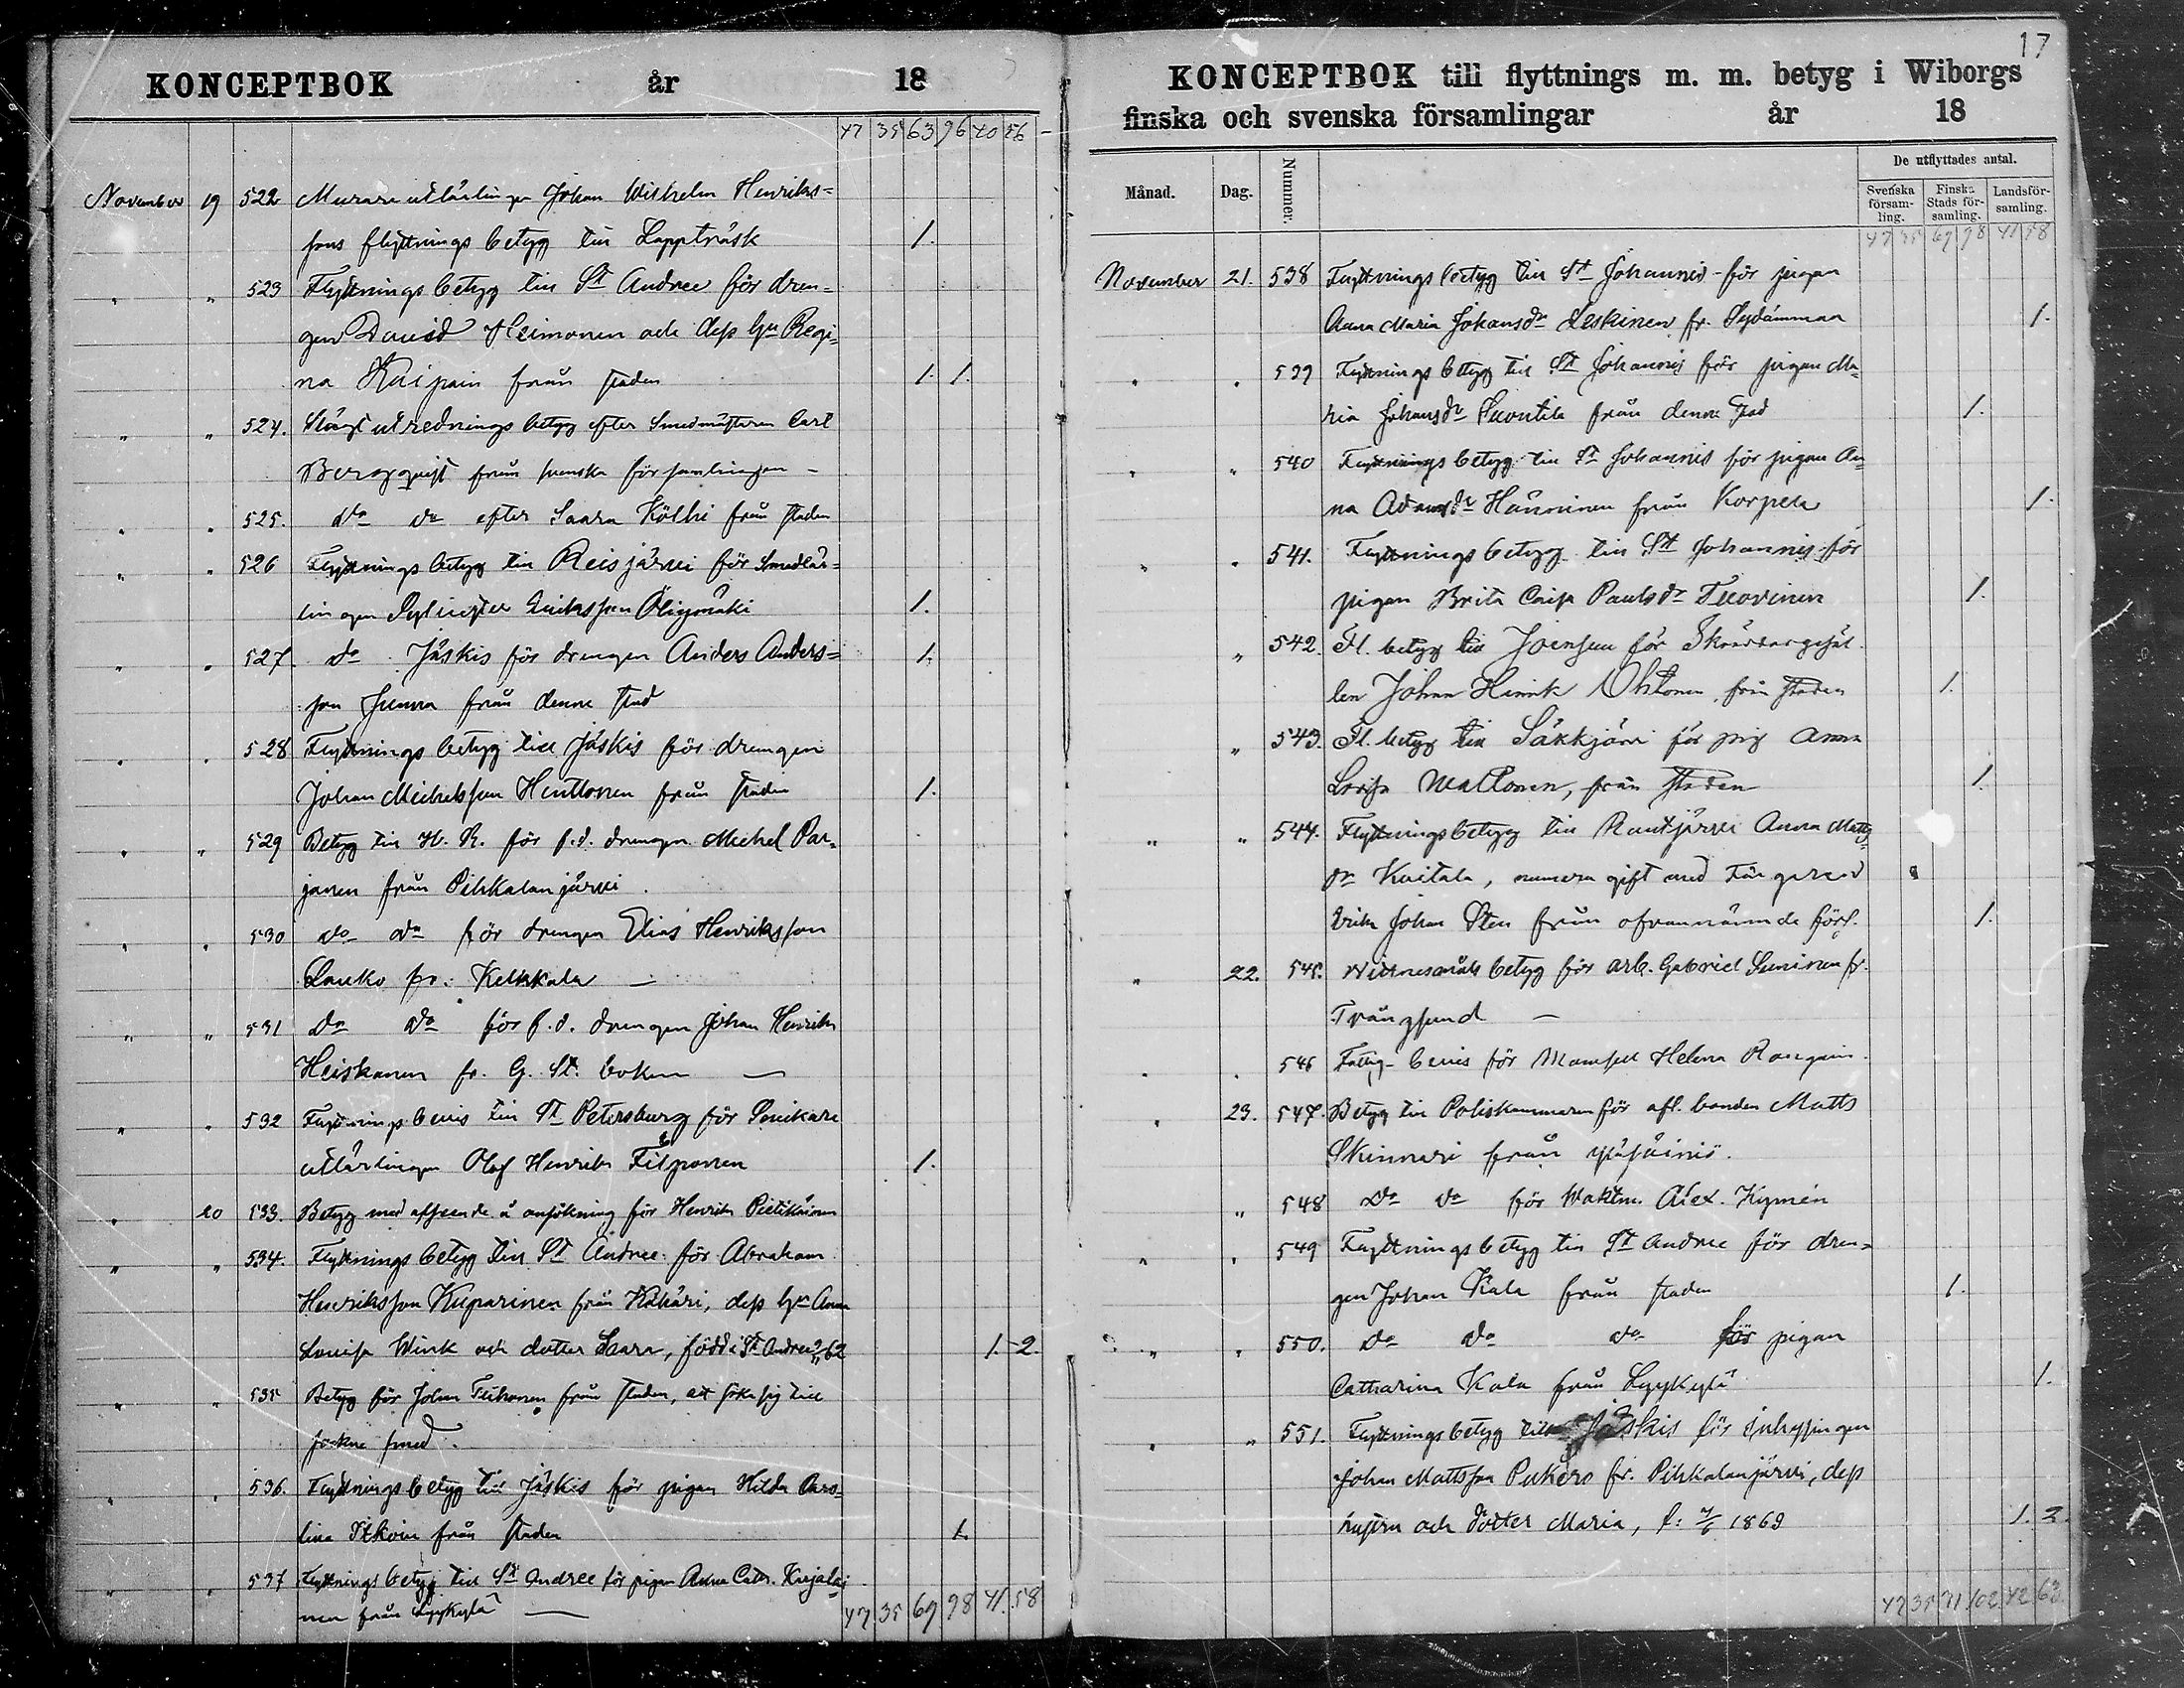 KONCEPTBOK år 18
47 35 63 96 40 56
November 19 522 Murareutlärlingen Johan Wilhelm Henriks=
sons flyttningsbetyg till Lappträsk 1.
" " 523 Flyttningsbetyg till St Andree för dren=
gen David Heimonen och dess hu Regi=
na Kaipain från staden 1. 1.
" " 524. utredningsbetyg efter Smedmästaren Carl
Bergqvist från svenska församlingen –
" " 525. do do efter Saara Kölhi från staden
" " 526 Flyttningsbetyg till Reisjärvi för Smedlär=
lingen Eriksson 1.
" " 527. do Jäskis för drengen Anders Anders=
son Junna från denna stad 1.
" " 528 Flyttningsbetyg till Jäskis för drengen
Johan Michelsson Henttonen från staden 1.
" " 529 Betyg till H. R. för f.d. drengen Michel Par=
janen från Pihkalanjärvi.
" " 530 do do för drengen Elias Henriksson
Lauko fr. Kelkkala –
" " 531 do do för f.d. drengen Johan Henrik
Heiskanen fr. G. St. boken –
" " 532 Flyttningsbevis till St Petersburg för Snickare
utlärlingen Olof Henrik Filponen 1.
" 20 533. Betyg med afseende å ansökning för Henrik Pietikäinen
" " 534. Flyttningsbetyg till St Andree för Abraham
Henriksson Kuparinen från Kähäri, dess hu Anna
Lovisa Wink och dotter Saara, född i St Andree 62 1. 2.
" " 535 Betyg för Johan Tiihonen från staden, att söka sig till
socknesmed.
" " 536. Flyttningsbetyg till Jäskis för pigan Hilda Caro=
lina Itkoin från staden 1.
" " 537 Flyttningsbetyg till St Andree för pigan Anna Cath. Kujalai
nen från Lyykylä –
47 35 67 98 41 58
17
KONCEPTBOK till flyttnings m. m. betyg i Wiborgs
finska och svenska församlingar år 18
Månad. Dag. Nummer. De utflyttades antal.
Svenska församling. Finska Stads församling. Landsförsamling.
47 35 67 98 41 58
November 21. 538 Flyttningsbetyg till St Johannis för pigan
Anna Maria Johansdr Leskinen fr. Sydänmaa 1.
" " 539 Flyttningsbetyg till St Johannis för pigan Ma=
ria Johansdr Suontila från denna stad 1.
" " 540 Flyttningsbetyg till St Johannis för pigan An=
na Adamsdr Hänninen från Korpela 1.
" " 541. Flyttningsbetyg till St Johannis för
pigan Brita Caisa Paulsdr Tuovinen 1.
" 542. Fl. betyg till Joensuu för Skräddargesäl
len Johan Henrik Ohtonen från staden 1.
" 543. Fl. betyg till Säkkjärvi för pig Anna
Lovisa Mattonen, från staden 1.
" " 544. Flyttningsbetyg till Rautjärvi Anna Matts
dr Kuitala, numera gift med
Erik Johan Sten från ofvannämnde förs. 1.
" 22. 545. Wittnesmåls betyg för arb. Gabriel Suninen fr.
Trångsund –
" " 546 Fattig-bevis för Mamsell Helena
" 23. 547. Betyg till Poliskammaren för afl. bonden Matts
Skinnari från
" 548 do do för Waktm. Alex. Kymén
" " 549 Flyttningsbetyg till St Andree för dren=
gen Johan Kala från staden 1.
" " 550. do do do för pigan
Catharina Kala från Lyykylä 1.
" " 551. Flyttningsbetyg till Jäskis för inhysingen
Johan Mattsson Pukero fr. Pihkalanjärvi, dess
hustru och dotter Maria, f. 7/6 1869 1. 2.
47 35 71 102 42 63